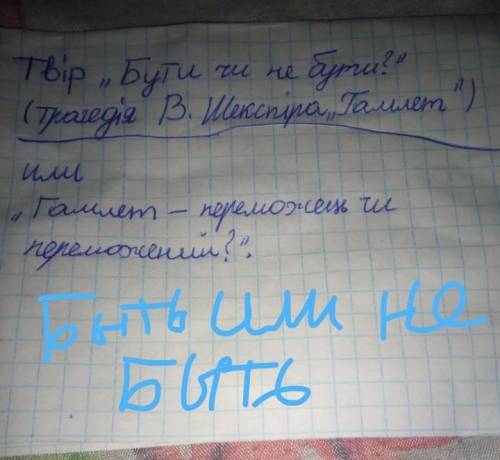 Твір „Бути чи не бути?"
(трагедія В. Шекспіра „Гамлет")
или
„Гамлет – переможець чи
переможений?".
Быть или не
Быть